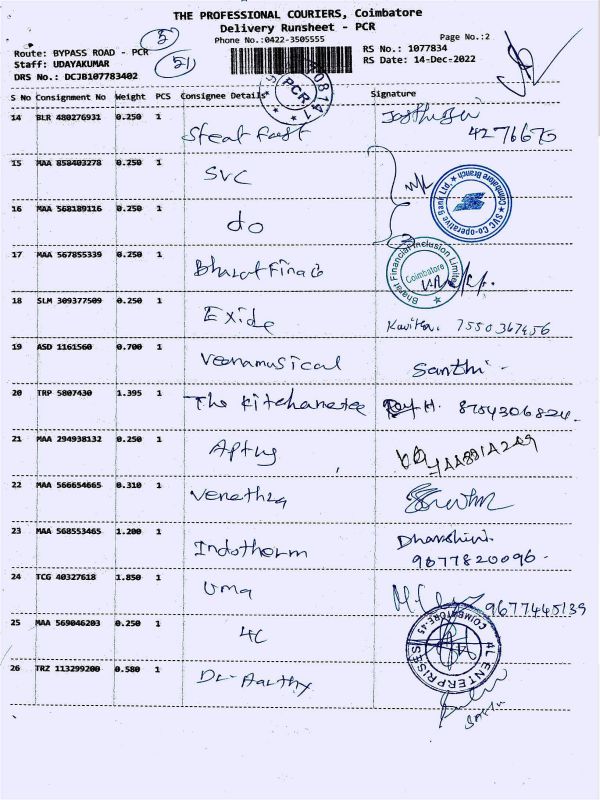 THE PROFESSIONAL COURIERS, Coimbatore
Delivery Runsheet - PCR
Phone No.:0422-3505555
Page No.:2
Route: BYPASS ROAD - PCR
Staff: UDAYAKUMAR
DRS No.: DCJB107783402
RS No.: 1077834
RS Date: 14-Dec-2022
51
PCR
S No Consignment No Weight PCS Consignee Details Signature
14 BLR 480276931 0.250 1 Steal fast
4276670
15 MAA 858403278 0.250 1 SVC
SVC Co-operative Bank Ltd. Coimbatore Branch
16 MAA 568189116 0.250 1 do
17 MAA 567855339 0.250 1 Bharat Finab
Bharat Financial Inclusion Limited Coimbatore
18 SLM 309377509 0.250 1 Exide Kavitha. 7550367456
19 ASD 1161560 0.700 1 Veenamusical Santhi
20 TRP 5807430 1.395 1 The Kitchanetee H. 8754306824
21 MAA 294938132 0.250 1 Aptus
22 MAA 566654665 0.310 1 Venethra
23 MAA 568553465 1.200 1 Indotherm Dharshini
9677820096
24 TCG 40327618 1.850 1 Uma 9677445139
25 MAA 569046203 0.250 1 4C
4L ENTERPRISES COIMBATORE-45
26 TRZ 113299200 0.580 1 Dr Aarthy